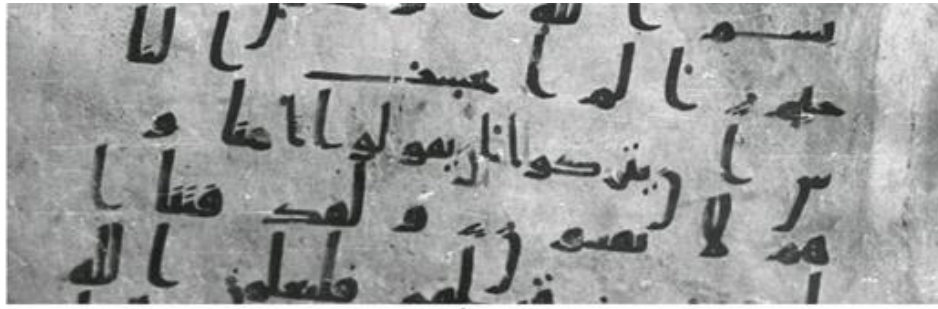 بسم الله
حيم الم احسب النا
س ان يتركوا ان يقولوا امنا و
هم لا يفتنون و لقد فتنا ا
قبلهم فليعلمن الله